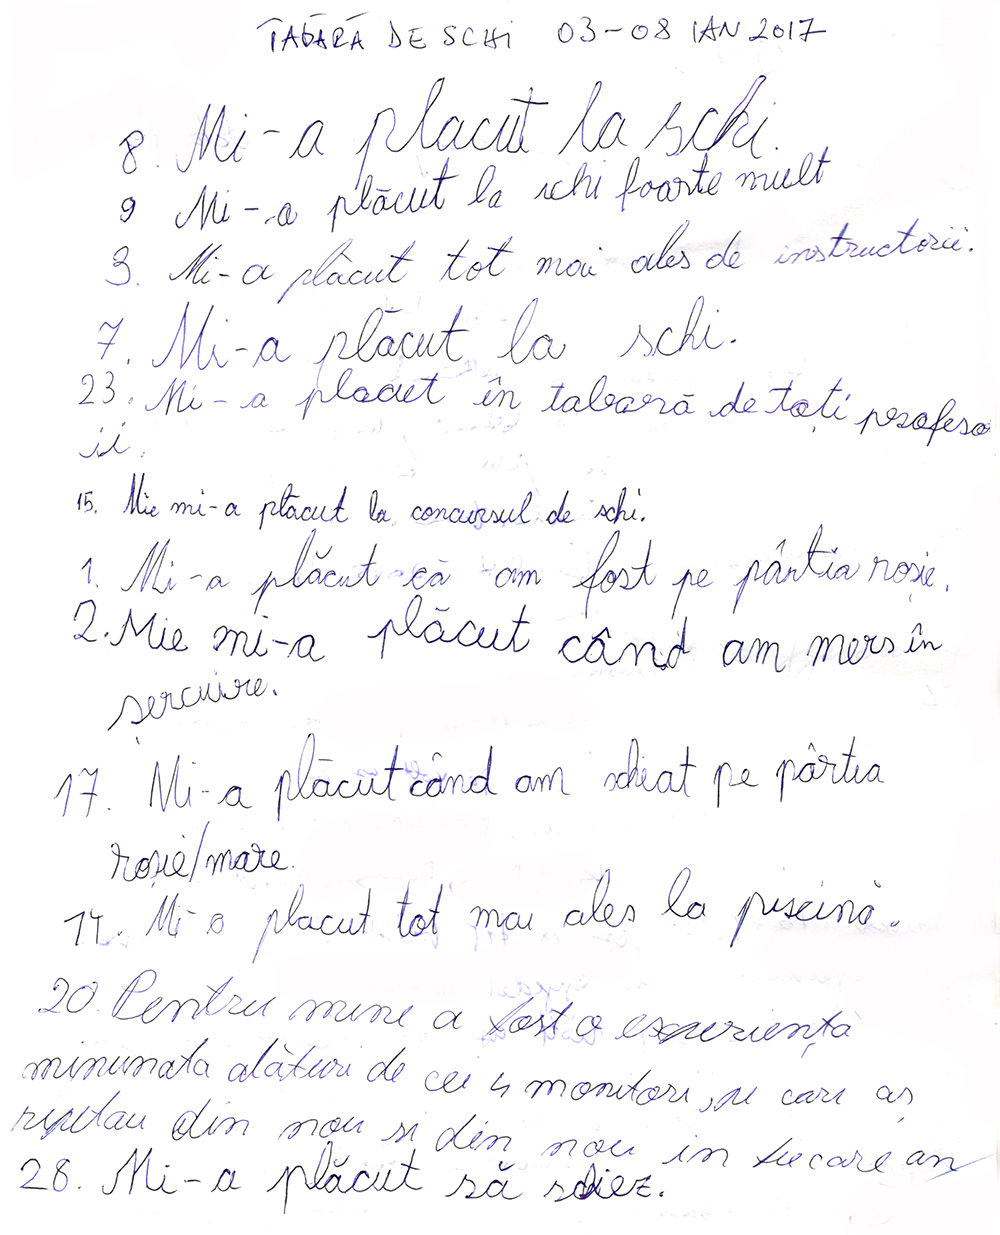 TABĂRĂ DE SCHI 03-08 IAN 2017
8. Mi-a placut la schi.
9 Mi-a plăcut la schi foarte mult
3. Mi-a plăcut tot mai ales de instructorii.
7. Mi-a plăcut la schi.
23. Mi-a placut în tabară de toți profeso
ii.
15. Mie mi-a plăcut la concursul de schi.
1. Mi-a plăcut că am fost pe pârtia roșie.
2. Mie mi-a plăcut când am mers în
șercuire.
17. Mi-a plăcut când am schiat pe pârtia
roșie/mare.
14. Mi-a placut tot mai ales la piscină.
20. Pentru mine a fost o experiența
minunata alături de cei 4 monitori, pe care aș
repetau din nou si din nou in fiecare an
28. Mi-a plăcut să schiez.